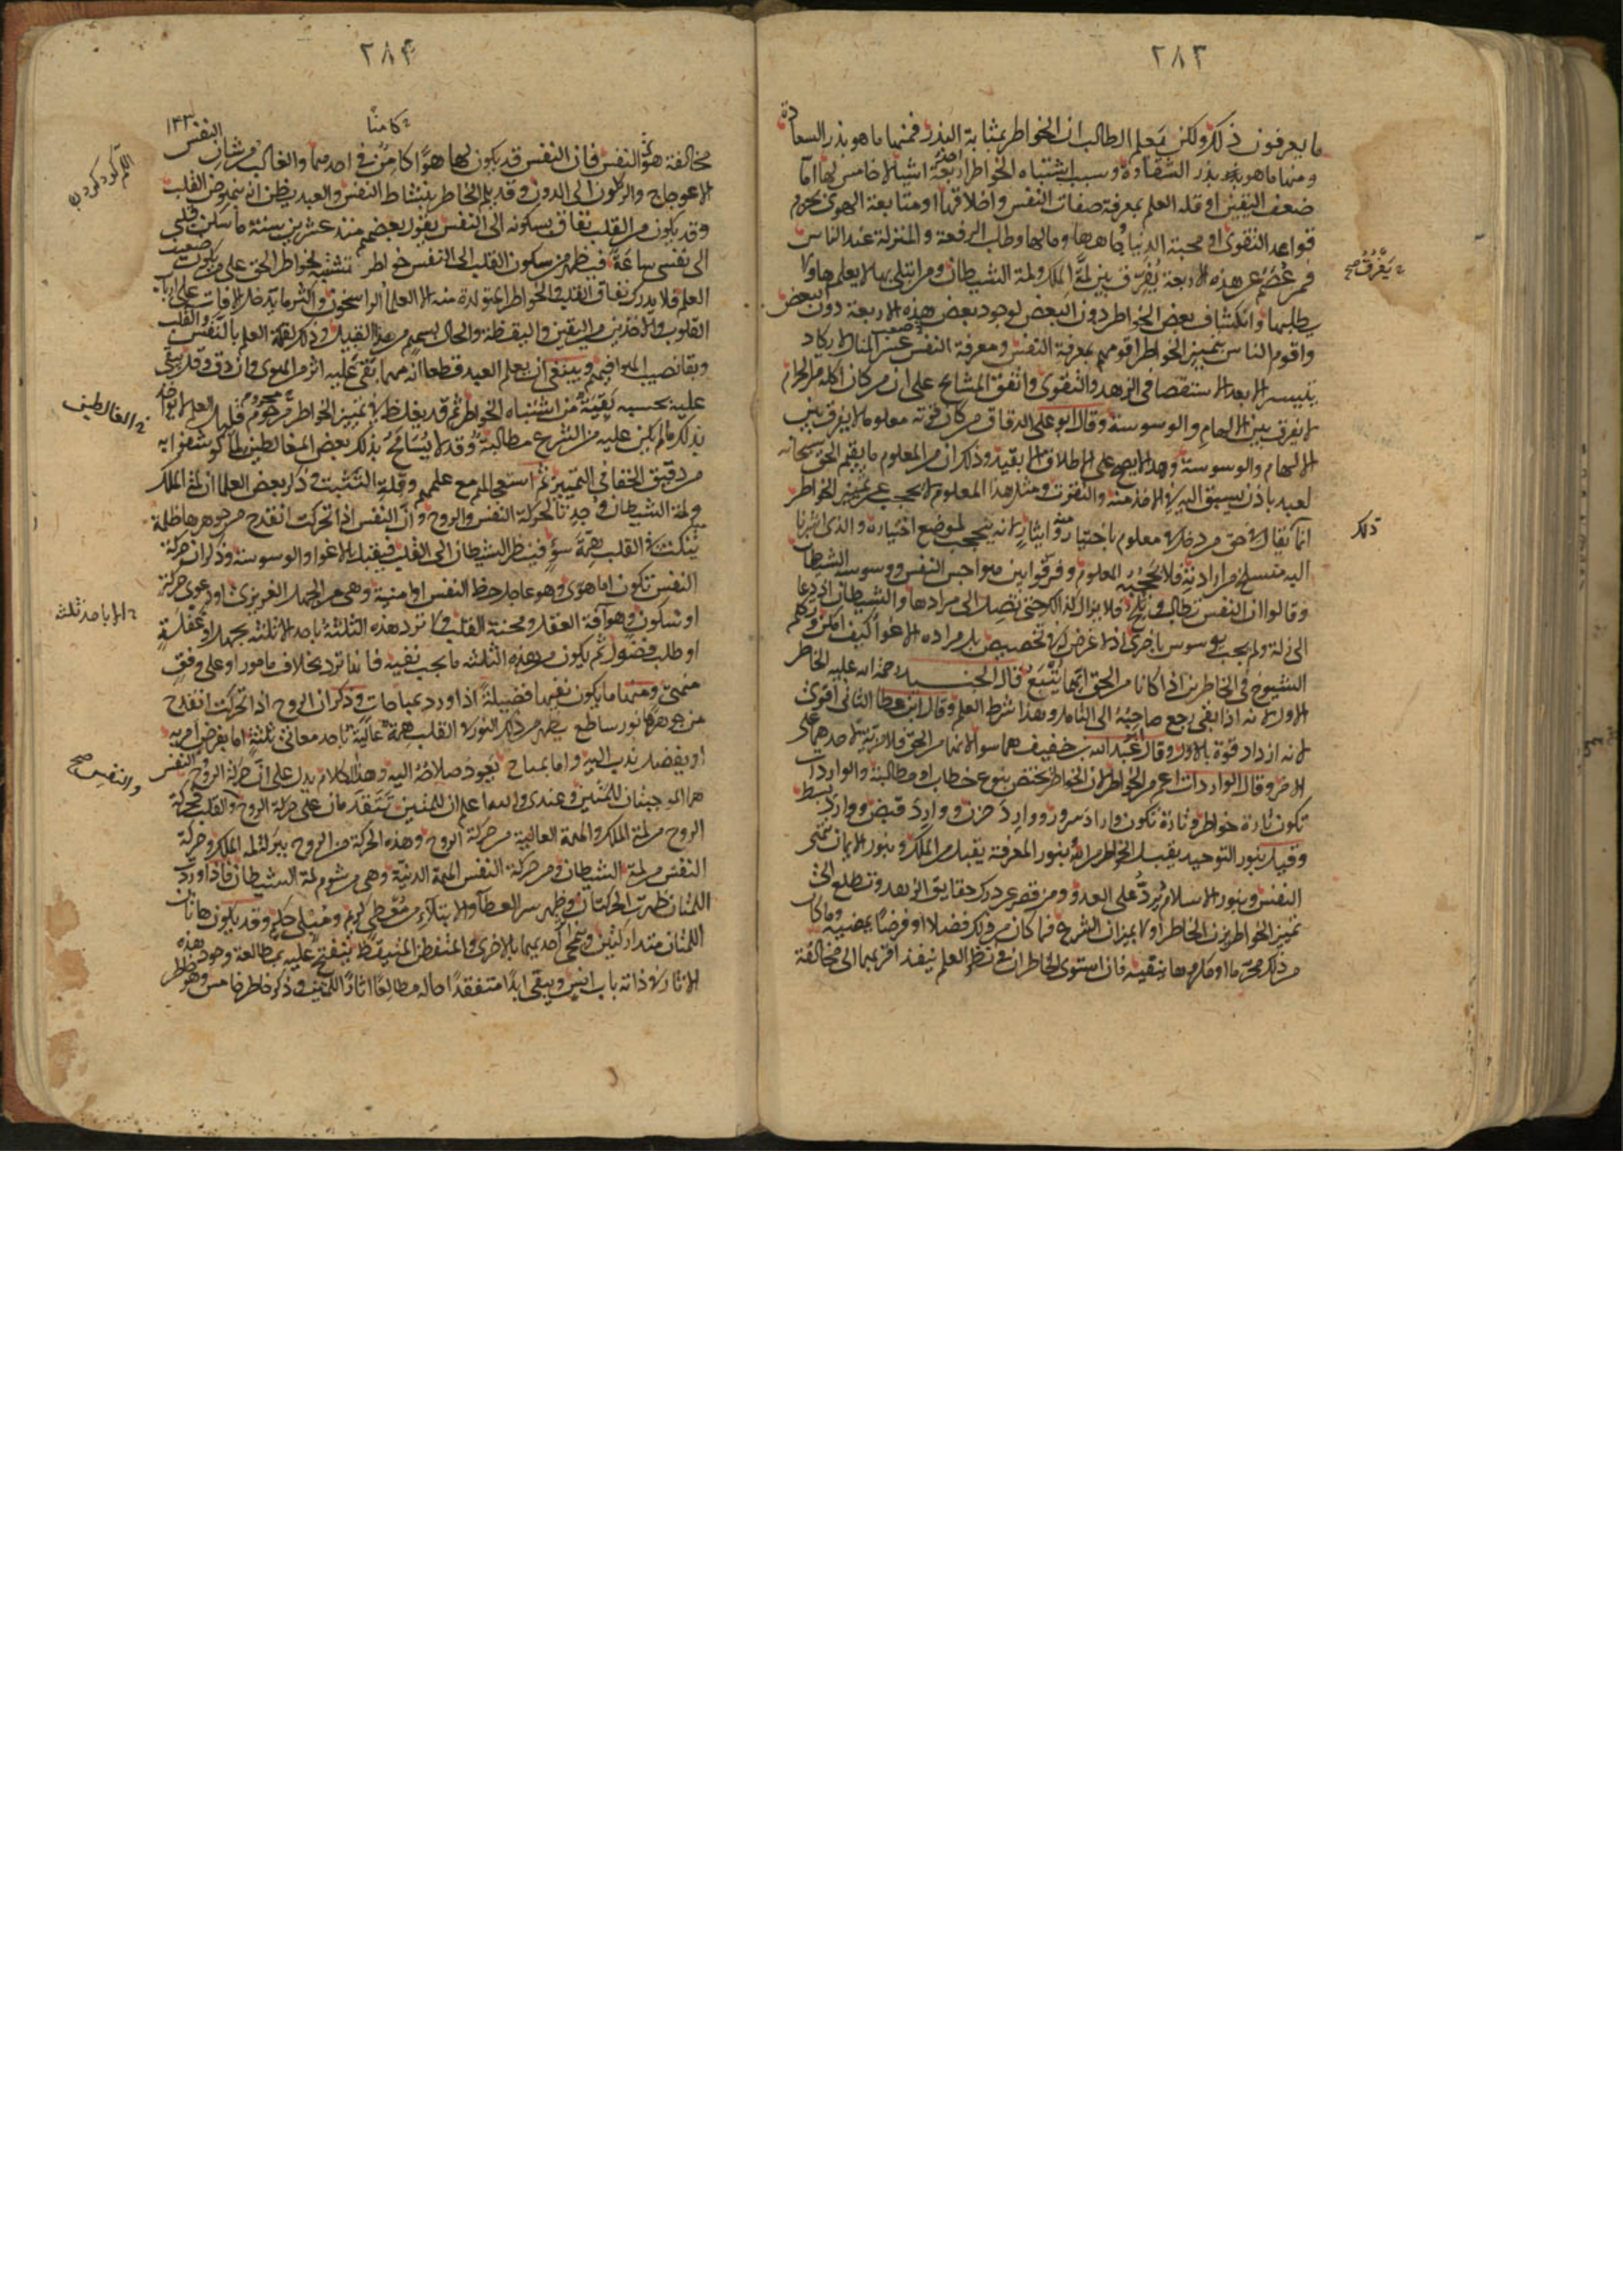 ٢٨٣
ما يعرفون ذلك ولكن يعلم الطالب ان الخواطر بمثابة البذر فمنها ما هو بذر السعادة
ومنها ما هو بذر الشقاوة وسبب اشتباه الخواطر احد اربعة اشيا لا خامس لها اما
ضعف اليقين او قلة العلم بمعرفة صفات النفس واخلاقها او متابعة الهوى بخرم
قواعد التقوى او محبة الدنيا جاهها ومالها وطلب الرفعة والمنزلة عند الناس
فمن عُصم عن هذه الاربعة يُفرّق بين لمة الملك ولمة الشيطان ومن ابتلى بها لا يعلمها ولا
يطلبها وانكشاف بعض الخواطر دون البعض لوجود بعض هذه الاربعة دون البعض
واقوم الناس بتمييز الخواطر اقومهم بمعرفة النفس ومعرفة النفس صعب عسر المنال لا يكاد
يتيسر الا بعد الاستقصا فى الزهد والتقوى واتفق المشايخ على ان من كان اكله من الحرام
لا يفرق بين الالهام والوسوسة وقال ابو على الدقاق من كان قوته معلوما لا يفرق بين
الالهام والوسوسة وهذا لا يصح على الاطلاق الا بقيد وذلك ان من المعلوم ما يقسم الحق سبحانه
لعبد باذن يسبق اليه فى الاخذ منه والتقوت ومثل هذا المعلوم لا يحجب عن تمييز الخواطر
انما يقال فى حق من دخل فى معلوم باختيار منه وايثار لانه ينحجب لموضع اختياره والذى اشرنا
اليه منسلخ من ارادته فلا يحجبه المعلوم وفرقوا بين هواجس النفس ووسوسة الشيطان
وقالوا ان النفس تطالب وتلح فلا تزال كذلك حتى تصل الى مرادها والشيطان اذا دعا
الى زلة ولم يجب يوسوس باخرى اذ لا غرض له فى تخصيص بل مراده الاغوا كيف امكن وتكلم
الشيوخ فى الخاطرين اذا كانا من الحق ايهما يتبع قال الجنيد رحمة الله عليه الخاطر
الاول لانه اذا بقى رجع صاحبه الى التامل وهذا شرط العلم وقال ابن عطا الثانى اقوى
لانه ازداد قوة بالاول وقال ابو عبد الله بن خفيف هما سوا لانهما من الحق فلا مزية لاحدهما على
الاخر وقالوا الواردات اعم من الخواطر لان الخواطر تختص بنوع خطاب او مطالبة والواردات
تكون تارة خواطر وتارة تكون وارد سرور ووارد حزن ووارد قبض ووارد بسط
وقيل بنور التوحيد يقبل الخاطر من الله بنور المعرفة يقبل من الملك وبنور الايمان تنهى
النفس وبنور الاسلام يُردّ على العدو ومن قصر عن درك حقايق الزهد وتطلع الى
تمييز الخواطر يزن الخاطر اولا بميزان الشرع فما كان من ذلك فضلا او فرضا يمضيه وما كان
من ذلك محرما او مكروها ينفيه فان استوى الخاطران فى نظر العلم ينفذ اقربهما الى مخالفة
يُفَرِّقُ صح
ذلك
٢٨٤
١٤٣
كامنًا
مخالفة هوى النفس فان النفس قد يكون لها هوا كامن فى احدهما والغالب من شان النفس
الاعوجاج والركون الى الدون وقد يلم الخاطر بنشاط النفس والعبد يظن انه بنهوض القلب
وقد يكون من القلب نفاق بسكونه الى النفس يقول بعضهم منذ عشرين سنة ما سكن قلبى
الى نفسى ساعة فيظهر من سكون القلب الى النفس خواطر تشتبه بخواطر الحق على من يكون ضعيف
العلم فلا يدرك نفاق القلب والخواطر المتولدة منه الا العلما الراسخون واكثر ما يدخل الافات على ارباب
القلوب والاخذين من اليقين واليقظة والحال بسهم من هذا القبيل وذلك لقلة العلم بالنفس والقلب
وبقا نصيب الهوا فيهم وينبغى ان يعلم العبد قطعا انه مهما بقى عليه اثر من الهوى وان دق وقل يبقى
عليه بحسبه بقية من اشتباه الخواطر ثم قد يغلط فى تمييز الخواطر من هو قليل العلم لا يواخذ
بذلك ما لم يكن عليه من الشرع مطالبة وقد لا يُسَامَحُ بذلك بعض المغالطين لما كوشفوا به
من دقيق الخفا فى التمييز ثم استعجالهم مع علمهم وقلة التثبت وذكر بعض العلما ان لمة الملك
ولمة الشيطان وجدتا لحركة النفس والروح وان النفس اذا تحركت انقدح من جوهرها ظلمة
ينكت فى القلب همة سوء فينظر الشيطان الى القلب فيقبل بالاغوا والوسوسة وذكر ان حركة
النفس تكون اما هوى وهو عاجل حظ النفس او امنية وهى من الجهل الغريزى او دعوى حركة
او سكون وهو آفة العقل ومحنة القلب ولا ترد هذه الثلثة الا باحد ثلثة بجهل او غفلة
او طلب فضول ثم يكون من هذه الثلثه ما يجب نفيه فانها ترد بخلاف مامور او على وفق
منهى ومنها ما يكون نفيها فضيلة اذا ورد بمباحات وذكر ان الروح اذا تحركت انقدح
من جوهرها نور ساطع يظهر من ذلك النور فى القلب همة عالية باحد معانى ثلثة اما بفرض امر به
او بفضل ندب اليه واما بمباح يعود صلاحه اليه وهذا الكلام يدل على ان حركة الروح والنفس
هما الموجبتان للمتين وعندى والله اعلم ان اللمتين تتقدمان على حركة الروح والنفس فحركة
الروح من لمة الملك والهمة العالية من حركة الروح وهذه الحركة من الروح ببركة لمة الملك وحركة
النفس من لمة الشيطان ومن حركة النفس الهمة الدنيّة وهى من شوم لمة الشيطان فاذا وردت
اللمتان ظهرت الحركتان وظهر سر العطآ والابتلاء من معطى كريم ومبتلى حكيم وقد يكون هاتان
اللمتان متداركتين وينمحى اثر احديهما بالاخرى والمتفطن المتيقظ ينفتح عليه بمطالعة وجود هذه
الاثار فى ذاته باب انس ويبقى ابدا متفقدا حاله مطالعا اثار اللمتين وذكر خاطر خامس وهو خاطر
الغالطين
الا باحد ثلثه
والنفس صح